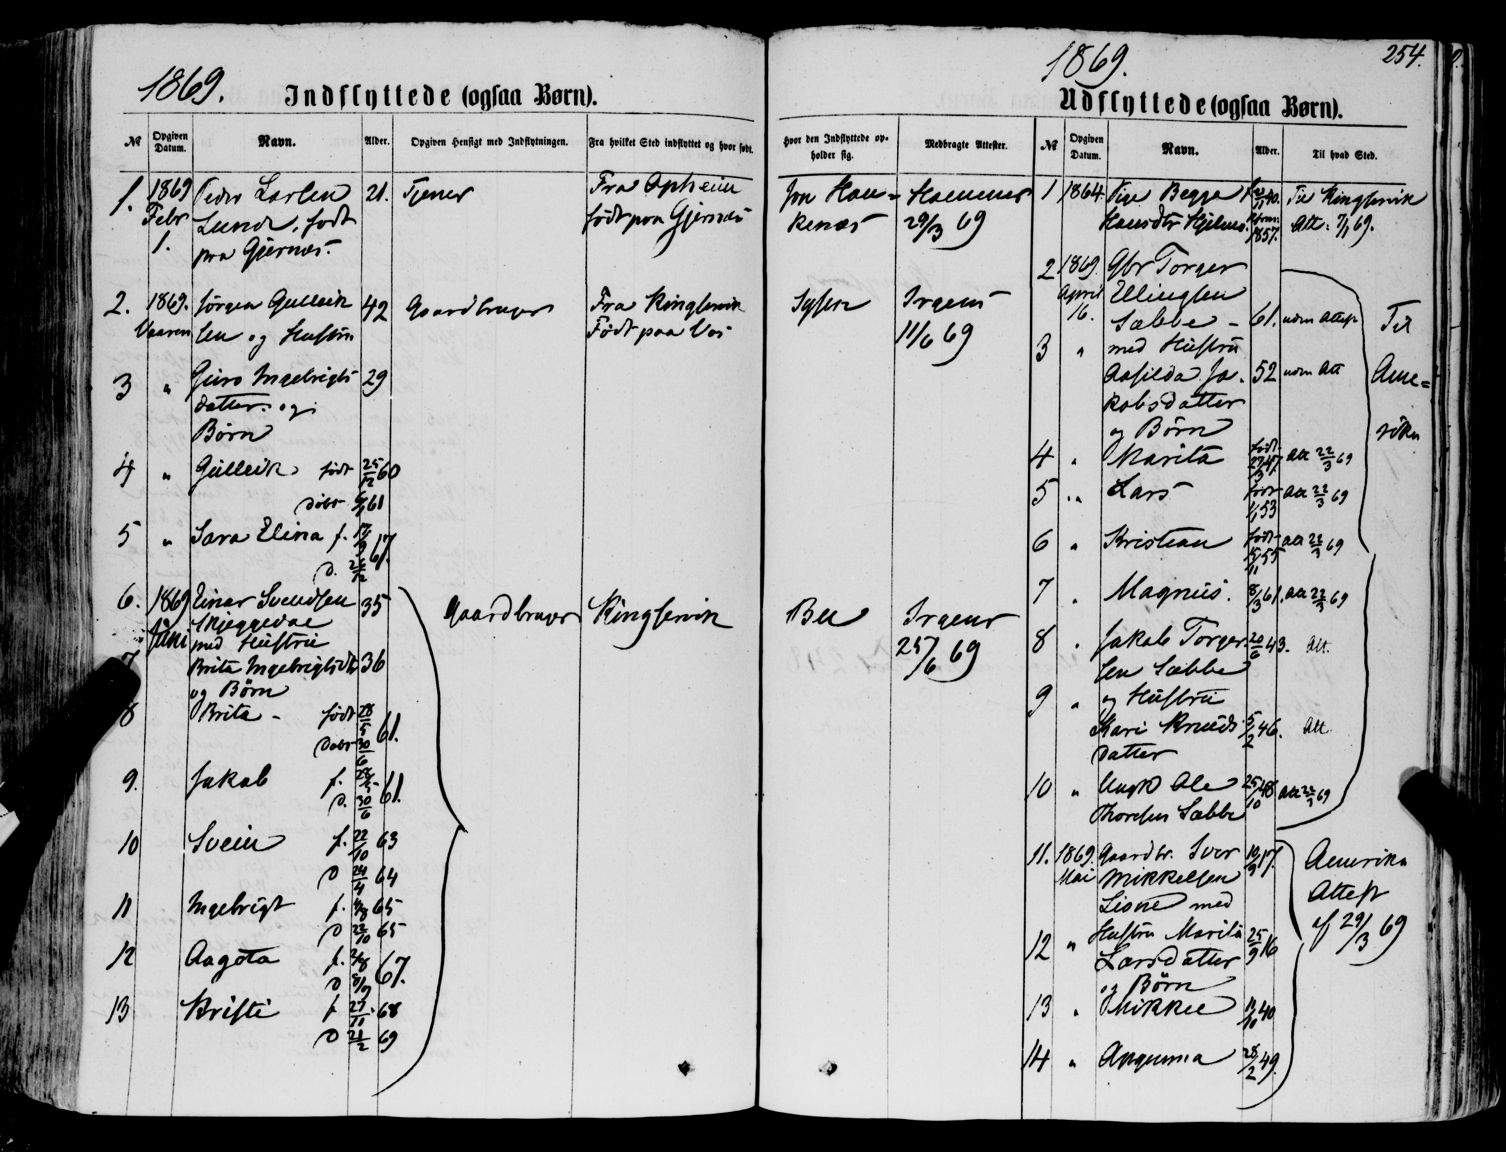 1869.
Indflyttede (ogsaa Børn).
№ Opgiven Datum. Navn. Alder. Opgiven Hensigt med Indflytningen. Fra hvilket Sted indflyttet og hvor født.
Hvor den Indflyttede opholder sig. Medbragte Attester.
1. 1869 Peder Larsen 21. Tjener Fra Opheim
Febr Lunde, født født paa Gjernæs
1. paa Gjernæs.
Hammer
29/3 69
2. 1869. Jørgen Gulleik 42 Gaardbruger Fra Kingservik
Vaaren sen og Hustru Født paa Vos
Sysen Irgens
11/6 69
3 " Guro Ingebrigts 29
datter og
Børn
4 " Gulleik født 25/12 60
døbt 6/1 61
5 " Sara Elina f. 67.
d.
6. 1869 Einar Svendsen 35 Gaardbruger Kingservik
Juni Skjeggedal
med Hustru
Bu Irgens
25/6 69
7 Brita Ingebrigtsdtr 36
og Børn
8 Brita - født 28/5 61.
døbt 30/6
9. Jakob f. 28/5 61.
d. 30/6
10 Svein f. 22/10 63
d 24/4 64
11 Ingebrigt f. 65
d 22/10 65
12 Aagota f. 67.
d 8/9
13 Kristi f 27/10 68
d 21/2 69
1869. 254.
Udflyttede (ogsaa Børn).
№ Opgiven Datum. Navn. Alder. Til hvad Sted.
1 1864. Pige Begga 40. Til Kingservik
Hansdtr Hjelmo. 1857. Att: 7/1 69.
2 1869. Gbr Torger
April Ellingsen
16. Sæbbe - 61. uden Attest
Til
Ame=
rika
3 " med Hustru
Aasilda Ja- 52 uden Att
kobsdatter
og Børn
4 " Marita født 27/3 47 Att 22/3 69
5 " Lars født 1/1 53 Att 22/3 69
6 " Kristian født 55 Att 22/3 69
7 " Magnus. 8/3 61. Att 22/3 69
8 " Jakob Torger- 20/6 43. Att.
sen Sæbbe
9 " og Hustru
Kari Knuds 5/2 46. Att
datter
10 " Ungk Ole 25/10 48 Att 22/3 69
Thorsen Sæbbe
11. 1869. Gaardbr. Iver 10/9 17. Amerika
Mai Mikkelsen Attest
Lione med af 29/3 69
12 " Hustru Marita 25/9 16
Larsdatter
og Børn
13 " Mikkel 40
14 " Angunna 28/2 49.